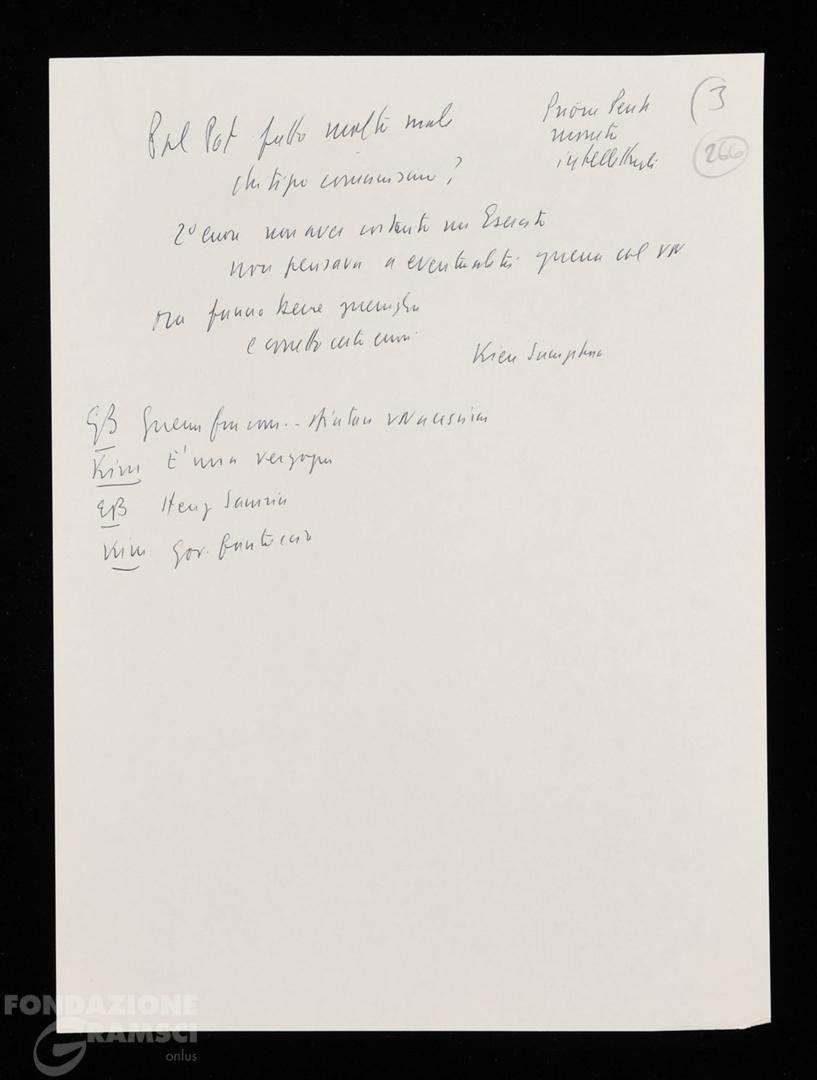 Pol Pot fatto molto male
che tipo comunismo?
Pnom Penh
moneta
intellettuali
(3
266
2° errore non aver costruito un Esercito
non pensava a eventualità guerra col VN
Ora fanno bene guerriglia
e corretto certi errori
Kieu Samphan
EB Guerra fra com..
Kim E' una vergogna
EB Heng Samrin
Kim Gov. fantoccio
FONDAZIONE
GRAMSCI
onlus